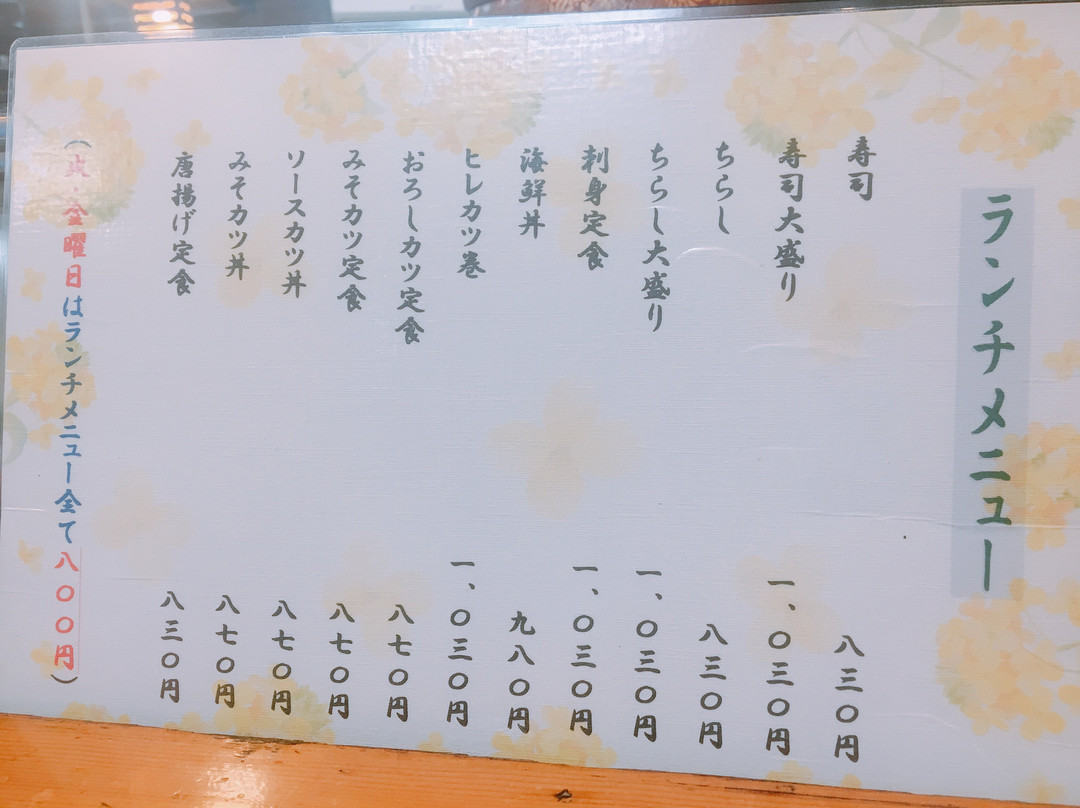 ランチメニュー
寿司 八三〇円
寿司大盛り 一、〇三〇円
ちらし 八三〇円
ちらし大盛り 一、〇三〇円
刺身定食 一、〇三〇円
海鮮丼 九八〇円
ヒレカツ巻 一、〇三〇円
おろしカツ定食 八七〇円
みそカツ定食 八七〇円
ソースカツ丼 八七〇円
みそカツ丼 八七〇円
唐揚げ定食 八三〇円
(火・金曜日はランチメニュー全て八〇〇円)